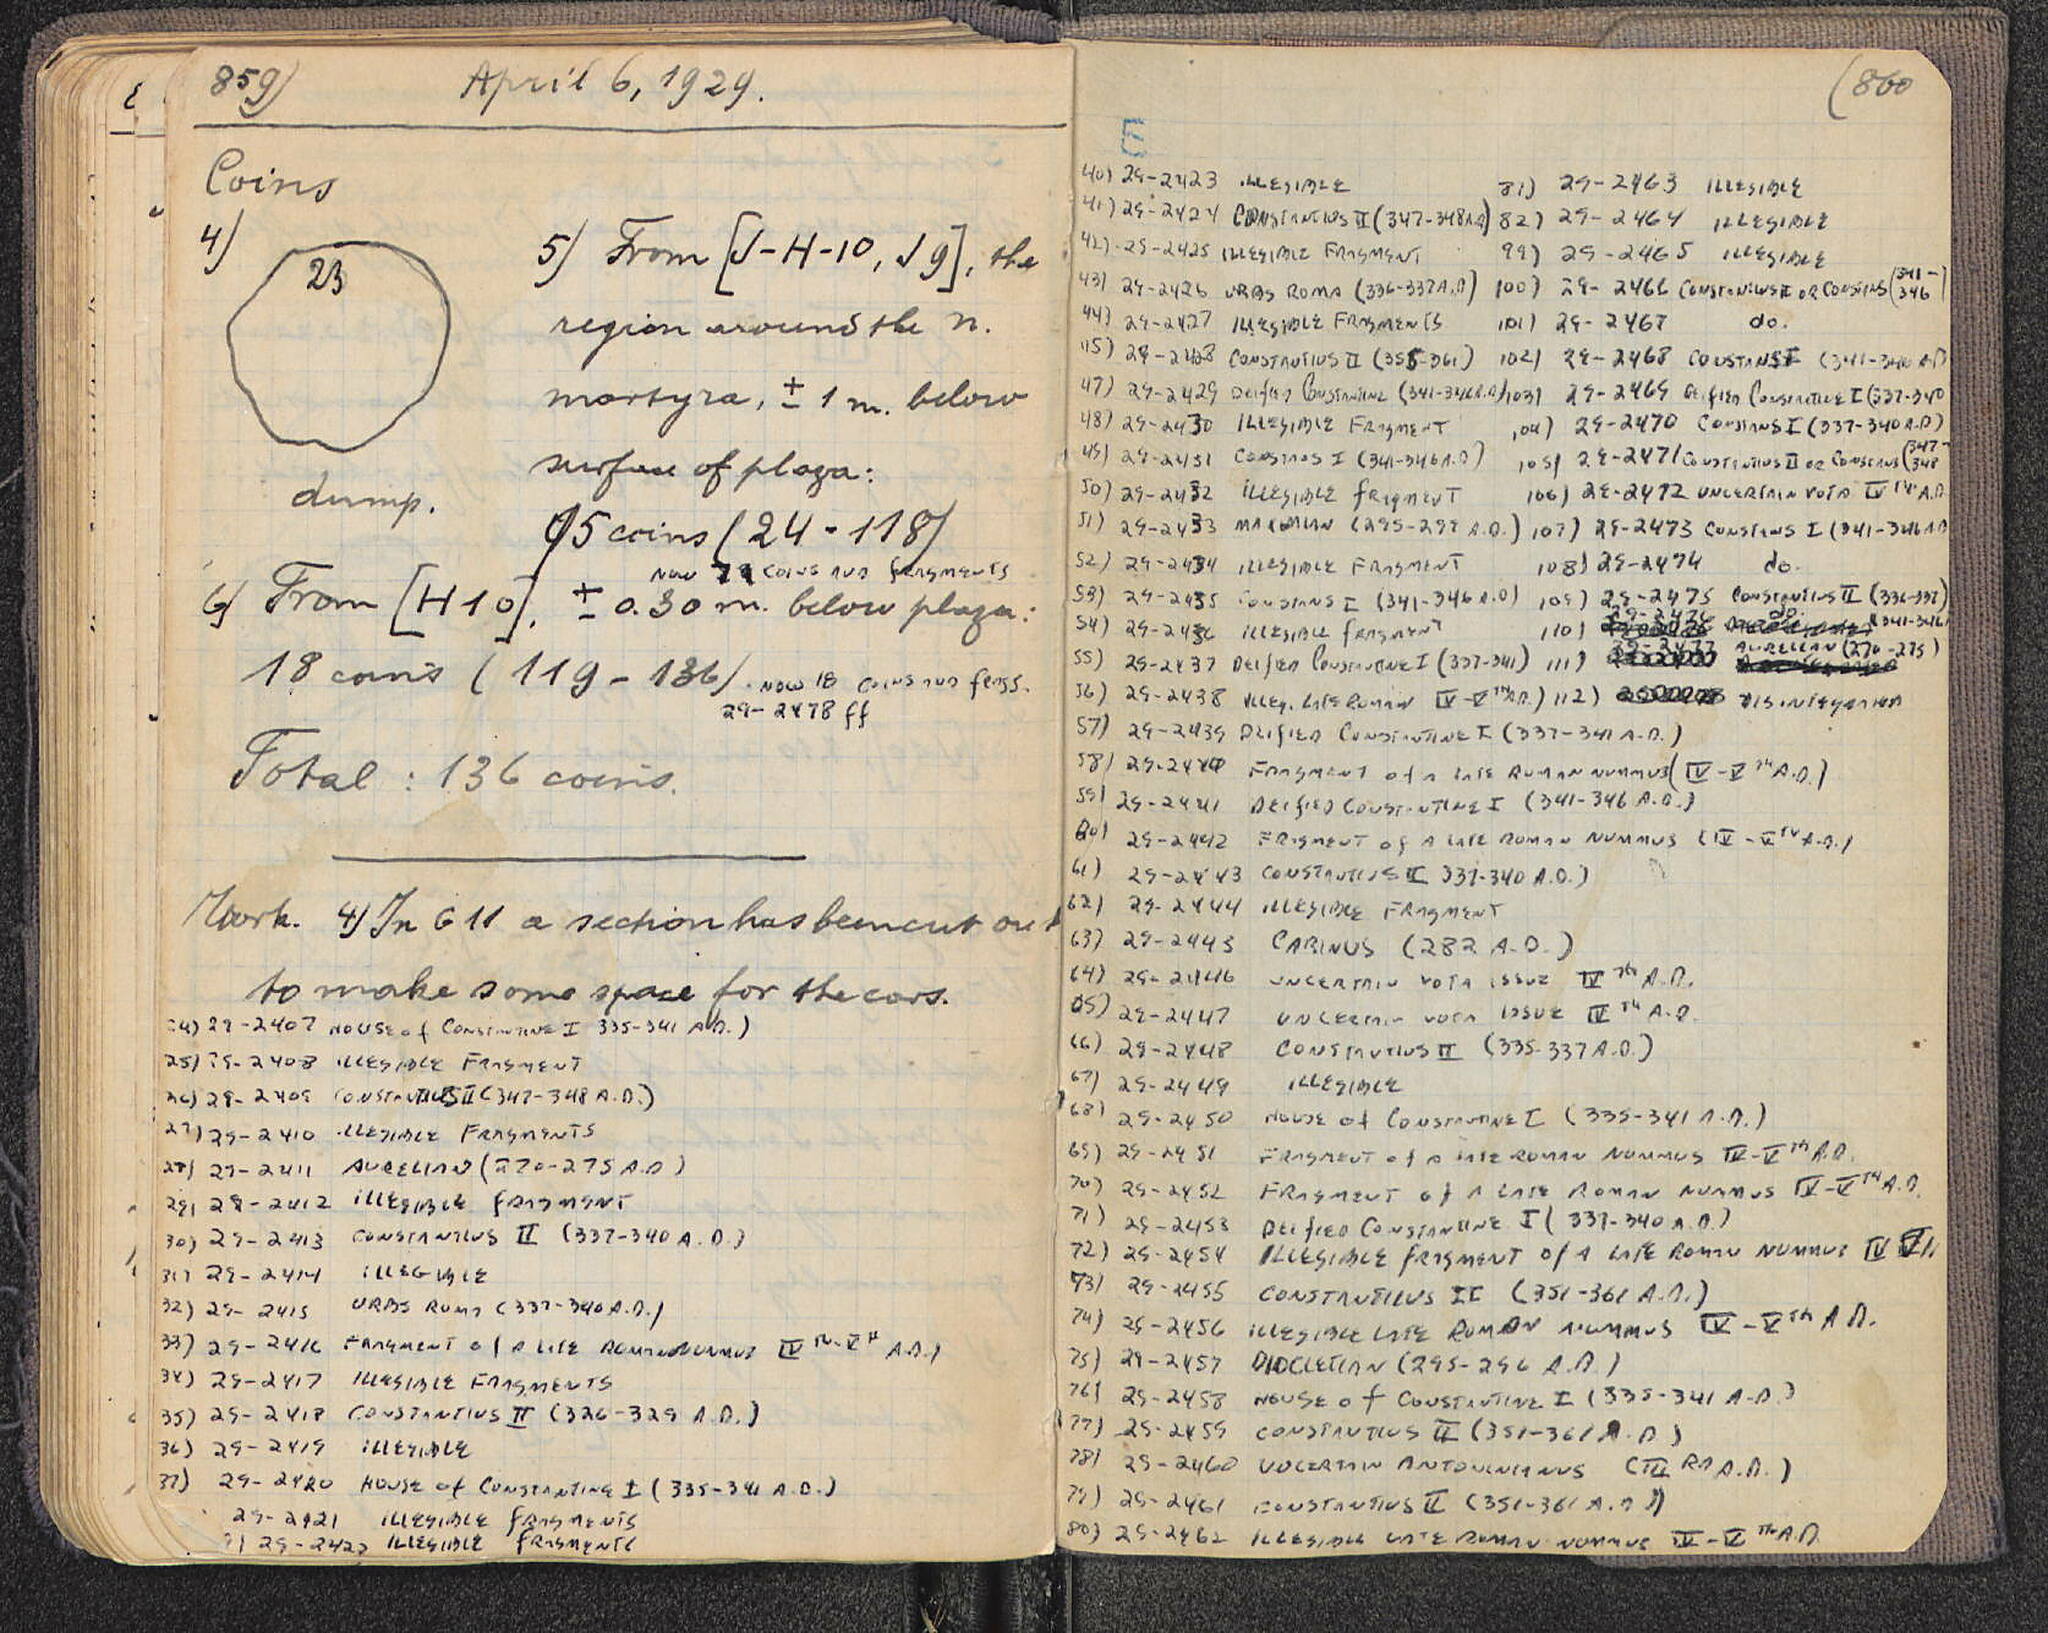 859) April 6, 1929.
Coins
4)
23
dump.
5) From [J-H-10, J9], the
region around the n.
martyra, ± 1 m. below
surface of plaza:
95 coins (24-118)
NOW 79 COINS AND FRAGMENTS
6) From [H10], ± 0.30 m. below plaza:
18 coins (119-136). NOW 18 COINS AND FRGS.
29-2478 ff
Total: 136 coins.
Work. 4) In G11 a section has been cut out
to make some space for the cars.
24) 29-2407 HOUSE of CONSTANTINE I 335-341 A.D.)
25) 29-2408 ILLEGIBLE FRAGMENT
26) 29-2409 CONSTANTIUS II (347-348 A.D.)
27) 29-2410 ILLEGIBLE FRAGMENTS
28) 29-2411 AURELIAN (270-275 A.D)
29) 29-2412 ILLEGIBLE FRAGMENT
30) 29-2413 CONSTANTIUS II (337-340 A.D.)
31) 29-2414 ILLEGIBLE
32) 29-2415 URBS ROMA (337-340 A.D.)
33) 29-2416 FRAGMENT of A LATE ROMAN NUMMUS IV TH-V TH A.D.)
34) 29-2417 ILLEGIBLE FRAGMENTS
35) 29-2418 CONSTANTIUS II (326-329 A.D.)
36) 29-2419 ILLEGIBLE
37) 29-2420 HOUSE of CONSTANTINE I (335-341 A.D.)
29-2421 ILLEGIBLE FRAGMENTS
29-2422 ILLEGIBLE FRAGMENTS
(860
E
40) 29-2423 ILLEGIBLE
41) 29-2424 CONSTANTIUS II (347-348 A.D)
42) 29-2425 ILLEGIBLE FRAGMENT
43) 29-2426 URBS ROMA (336-337 A.D)
44) 29-2427 ILLEGIBLE FRAGMENTS
45) 29-2428 CONSTANTIUS II (355-361)
47) 29-2429 DEIFIED CONSTANTINE (341-346 A.D)
48) 29-2430 ILLEGIBLE FRAGMENT
49) 29-2431 CONSTANS I (341-346 A.D)
50) 29-2432 ILLEGIBLE FRAGMENT
51) 29-2433 MAXIMIAN (295-297 A.D.)
52) 29-2434 ILLEGIBLE FRAGMENT
53) 29-2435 CONSTANS I (341-346 A.D)
54) 29-2436 ILLEGIBLE FRAGMENT
55) 29-2437 DEIFIED CONSTANTINE I (337-341)
56) 29-2438 ILLEG. LATE ROMAN IV-V TH A.D.)
57) 29-2439 DEIFIED CONSTANTINE I (337-341 A.D.)
58) 29-2440 FRAGMENT of A LATE ROMAN NUMMUS (IV-V TH A.D.)
59) 29-2441 DEIFIED CONSTANTINE I (341-346 A.D.)
60) 29-2442 FRAGMENT of A LATE ROMAN NUMMUS (IV-V TH A.D.)
61) 29-2443 CONSTANTIUS II 337-340 A.D.)
62) 29-2444 ILLEGIBLE FRAGMENT
63) 29-2445 CARINUS (282 A.D.)
64) 29-2446 UNCERTAIN VOTA ISSUE IV TH A.D.
65) 29-2447 UNCERTAIN VOTA ISSUE IV TH A.D.
66) 29-2448 CONSTANTIUS II (335-337 A.D.)
67) 29-2449 ILLEGIBLE
68) 29-2450 HOUSE of CONSTANTINE I (335-341 A.D.)
69) 29-2451 FRAGMENT of A LATE ROMAN NUMMUS IV-V TH A.D.
70) 29-2452 FRAGMENT of A LATE ROMAN NUMMUS IV-V TH A.D.
71) 29-2453 DEIFIED CONSTANTINE I (337-340 A.D.)
72) 29-2454 ILLEGIBLE FRAGMENT of A LATE ROMAN NUMMUS IV V
73) 29-2455 CONSTANTIUS II (351-361 A.D.)
74) 29-2456 ILLEGIBLE LATE ROMAN NUMMUS IV-V TH A.D.
75) 29-2457 DIOCLETIAN (295-296 A.D.)
76) 29-2458 HOUSE of CONSTANTINE I (335-341 A.D.)
77) 29-2459 CONSTANTIUS II (351-361 A.D)
78) 29-2460 UNCERTAIN ANTONINIANUS (III RD A.D.)
79) 29-2461 CONSTANTIUS II (351-361 A.D)
80) 29-2462 ILLEGIBLE LATE ROMAN NUMMUS IV-V TH A.D.
81) 29-2463 ILLEGIBLE
82) 29-2464 ILLEGIBLE
99) 29-2465 ILLEGIBLE
100) 29-2466 CONSTANTIUS II OR CONSTANS (341-346)
101) 29-2467 do.
102) 29-2468 CONSTANS I (341-346 A.D
103) 29-2469 DEIFIED CONSTANTINE I (337-340
104) 29-2470 CONSTANS I (337-340 A.D)
105) 29-2471 CONSTANTIUS II OR CONSTANS (347-348
106) 29-2472 UNCERTAIN VOTA IV TH A.D.
107) 29-2473 CONSTANS I (341-346 A.D
108) 29-2474 do.
109) 29-2475 CONSTANTIUS II (336-337)
110) 29-2476 do. (341-346)
111) 29-2477 AURELIAN (270-275)
112) DISINTEGRATED